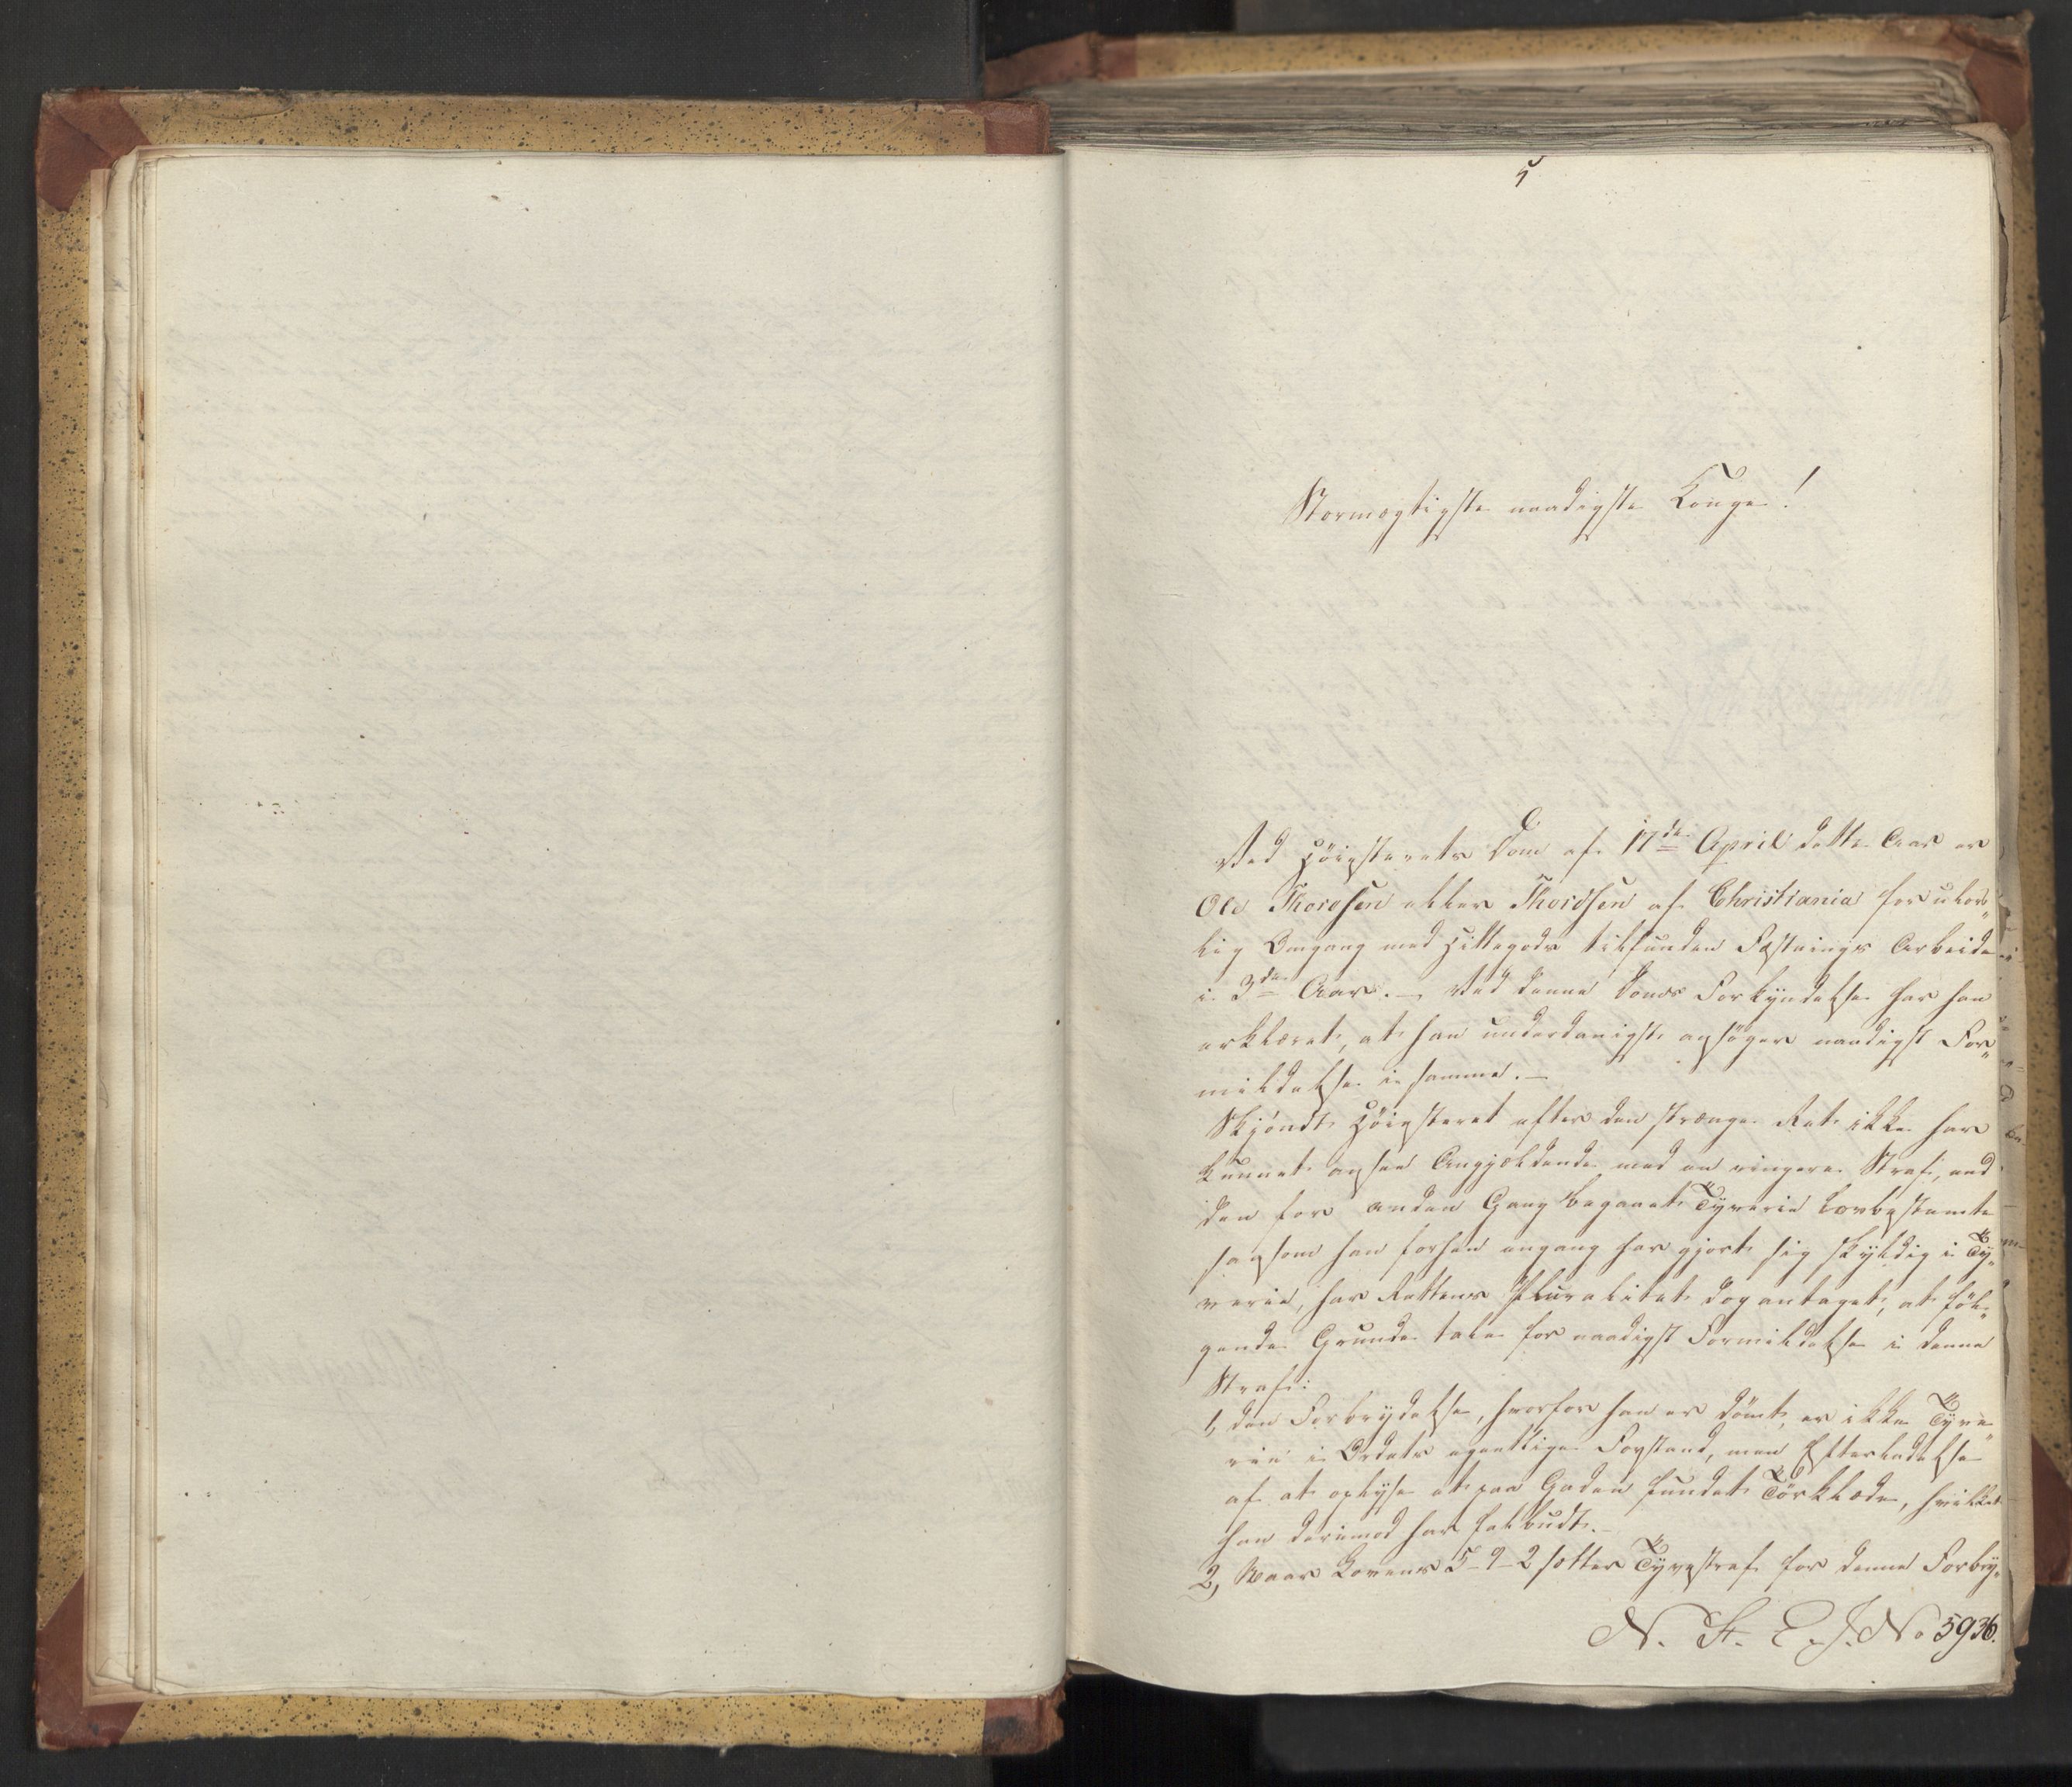 5
Stormægtigste naadigste Konge!
Ved Høiesterets Dom af 17de April dette Aar er
Ole Thoresen eller Thordsen af Christiania for ulov„
lig Omgang med Hittegods tilfunden Fæstnings Arbeide
i 3de Aar. — Ved denne Doms Forkyndelse har han
erklæret, at han underdanigst ansøger naadigst For„
mildelse i samme. —
Skjöndt Höiesteret efter den strænge Ret ikke har
kunnet ansee Angjældende med en ringere Straf, end
den for anden Gang begaaet Tyverie lovbestemte
saasom han forhen engang har gjort sig skyldig i Ty„
verie, har Rettens Pluralitet dog antaget, at föl„
gende Grunde tale for naadigst Formildelse i denne
Straf:
1, den Forbrydelse, hvorfor han er dömt, er ikke Tyve„
rie i Ordets egentlige Forstand, men Efterladelse
af at oplyse et paa Gaden fundet Törklæde, hvilket
han derimod har falbudt. —
2, Naar Lovens 5-9-2 sætter Tyvsstraf for denne Forbry„
N. St. E. J. No 5936.